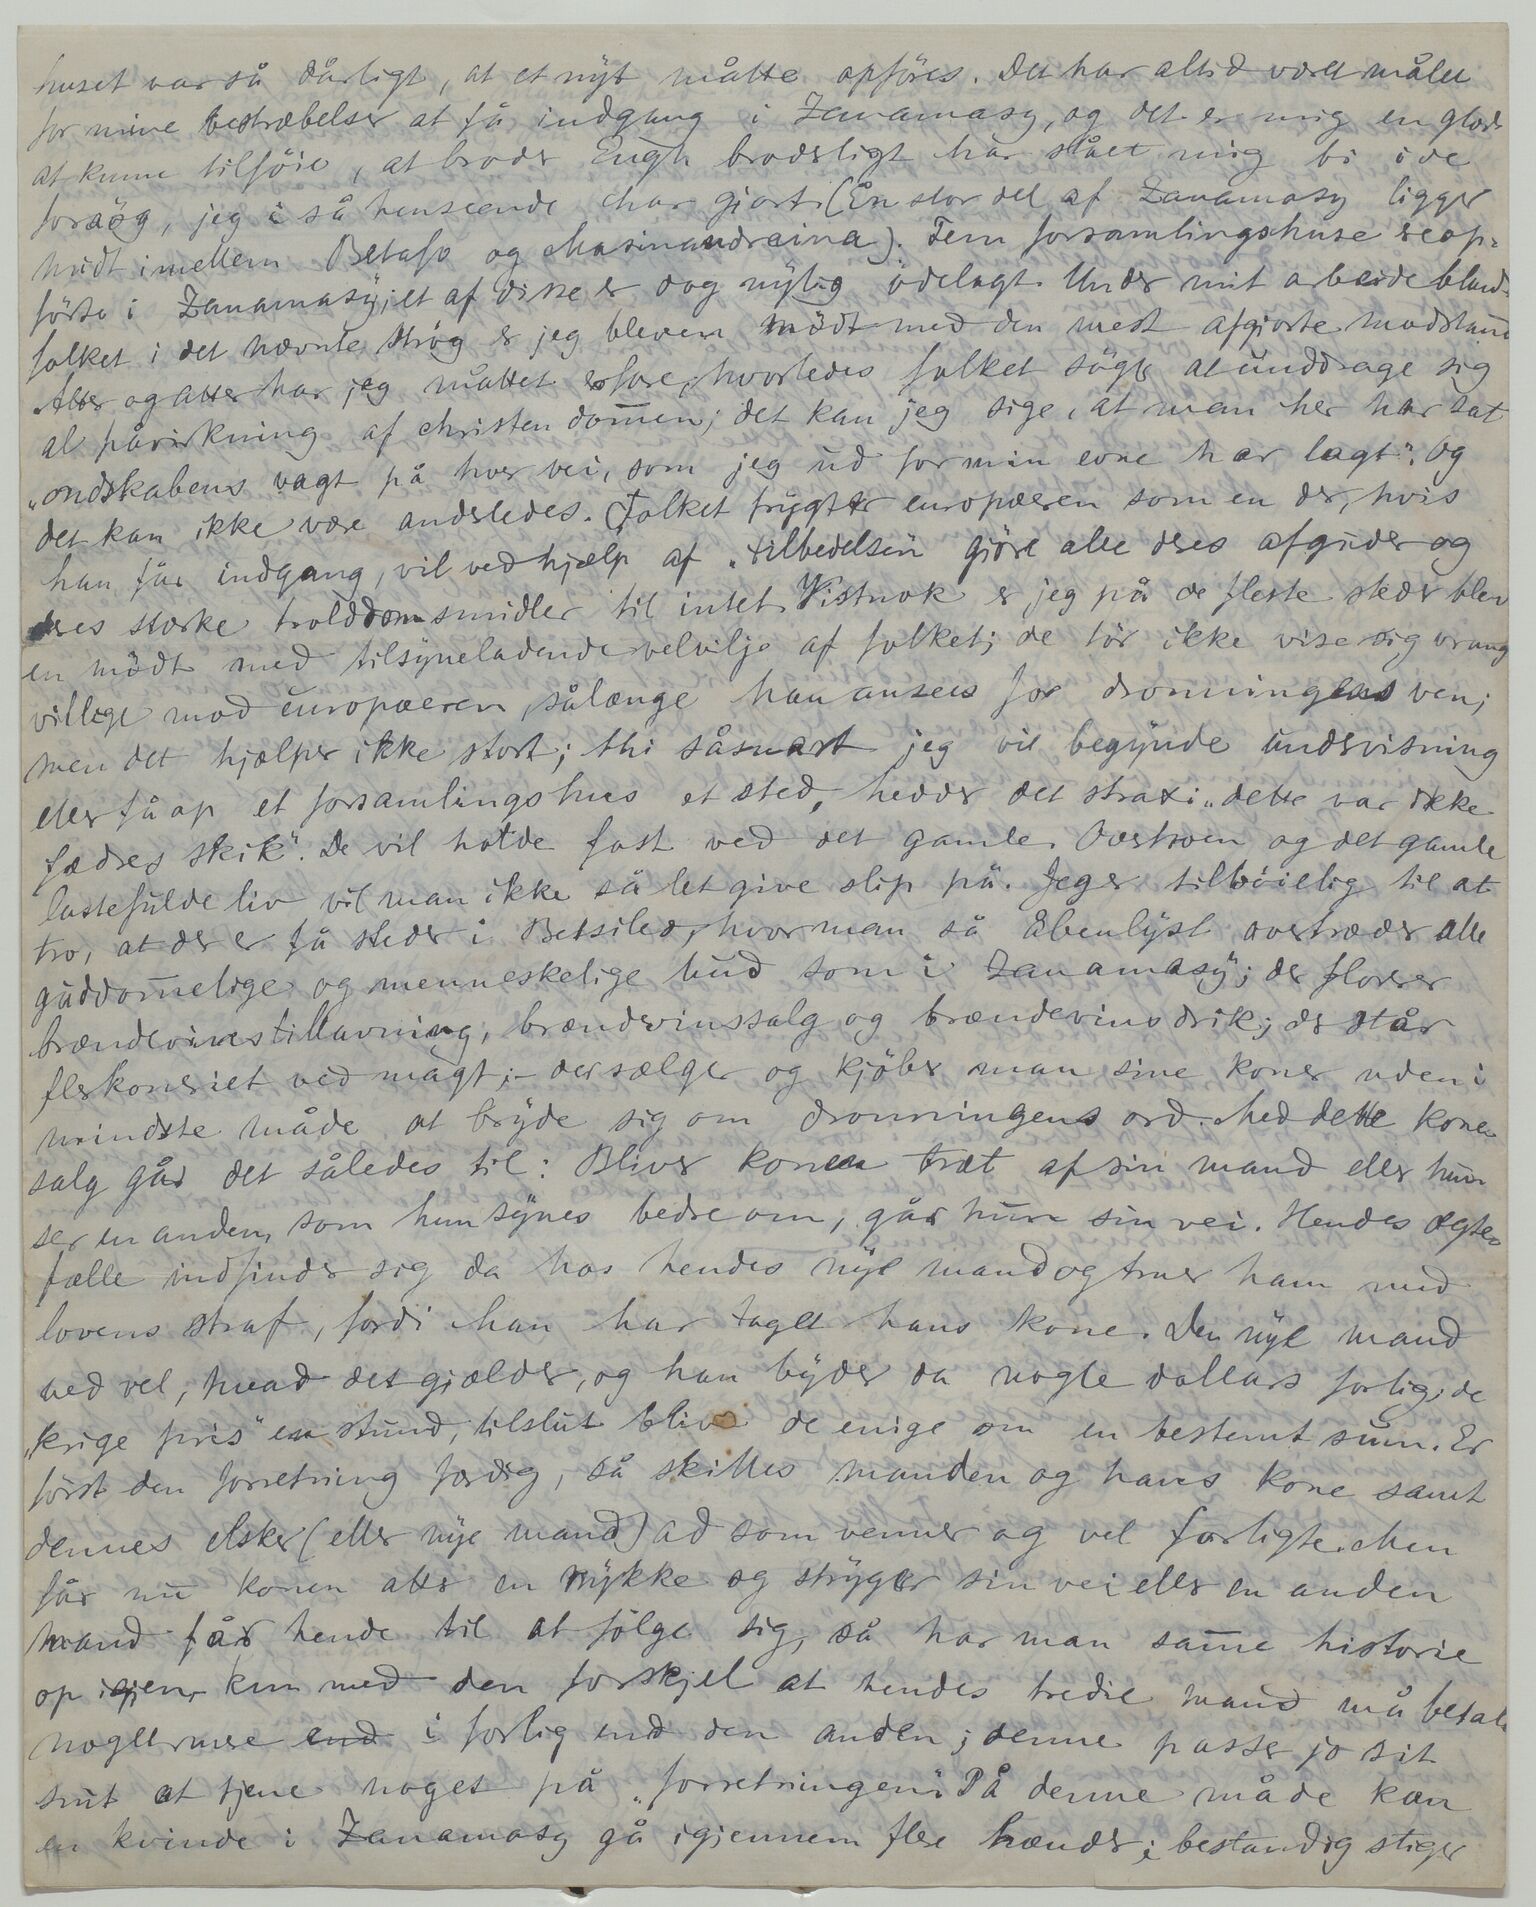 huset var så dårligt, at et nÿt måtte opföres. Det har altid været målet
for mine bestræbelser at få indgang i Zanamasy, og det er mig en glæde
at kunne tilföie, at broder Engh broderligt har stået mig bi i de
forsög, jeg i så henseende har gjort. (En stor del af Zanamasy ligger
midt imellem Betafo og Masinandraina). Fem forsamlingshuse er op-
förte i Zanamasÿ; et af disse er dog nÿlig ödelagt. Under mit arbeide bland
folket i det nævnte ströȷg er jeg bleven mödt med den mest afgjorte modstand
Atter og atter har jeg måttet erfare, hvorledes folket söger at unddrage sig
al påvirkning af christendom̅en; det kan jeg sige, at man her har sat
„ondskabens vagt på hver vei, som jeg ud for min evne har lagt". Og
det kan ikke være anderledes. Folket frÿgter europæeren som en der, hvis
han får indgang, vil ved hjælp af „tilbedelsen" gjöre alle deres afguder og
deres stærke trolddomsmidler til intet. Vistnok er jeg på de fleste steder blev
en mödt med tilsÿneladende velvilje af folket; de tör ikke vise sig vrang
villige mod europæeren, sålænge han ansees for dronningens ven;
men det hjælper ikke stort; thi såsnart jeg vil begÿnde undervisning
eller få op et forsamlingshus et sted, hedder det strax: „dette var ikke
fædres skik". De vil holde fast ved det gamle. Overtroen og det gamle
lastefulde liv vil man ikke så let give slip på. Jeg er tilböielig til at
tro, at der er få steder i Betsileo, hvor man så åbenlÿst overtræder alle
guddom̅elige og menneskelige bud som i Zanamasÿ; der florerer
brændevinstillavning, brændevinssalg og brændevinsdrik; der står
flerkoneriet ved magt; – der sælger og kjöber man sine koner uden i
mindste måde at brÿde sig om dronningens ord. Med dette kone-
salg går det således til: Bliver konen træt af sin mand eller hun
ser en anden, som hun sÿnes bedre om, går hun sin vei. Hendes ægte-
fælle indfinder sig da hos hendes nÿe mand og truer ham med
lovens straf, fordi han har taget hans kone. Den nÿe mand
ved vel, hvad det gjælder, og han bÿder da nogle dollars forlig; de
„krige pris" en stund, tilslut blive de enige om en bestemt sum. Er
först den forretning færdig, så skilles manden og hans kone samt
dennes elsker (eller nÿe mand) ad som venner og vel forligte. Men
får nu konen atter en nÿkke og strÿger sin vei eller en anden
mand får hende til at fölge sig, så har man sam̅e historie
op igjen, kun med den forskjel at hendes tredie mand må betale
noget mere end i forlig end den anden; denne passer jo sit
snit at tjene noget på „forretningen". På denne måde kan
en kvinde i Zanamasy gå igjennem flere hænder; bestandig stiger